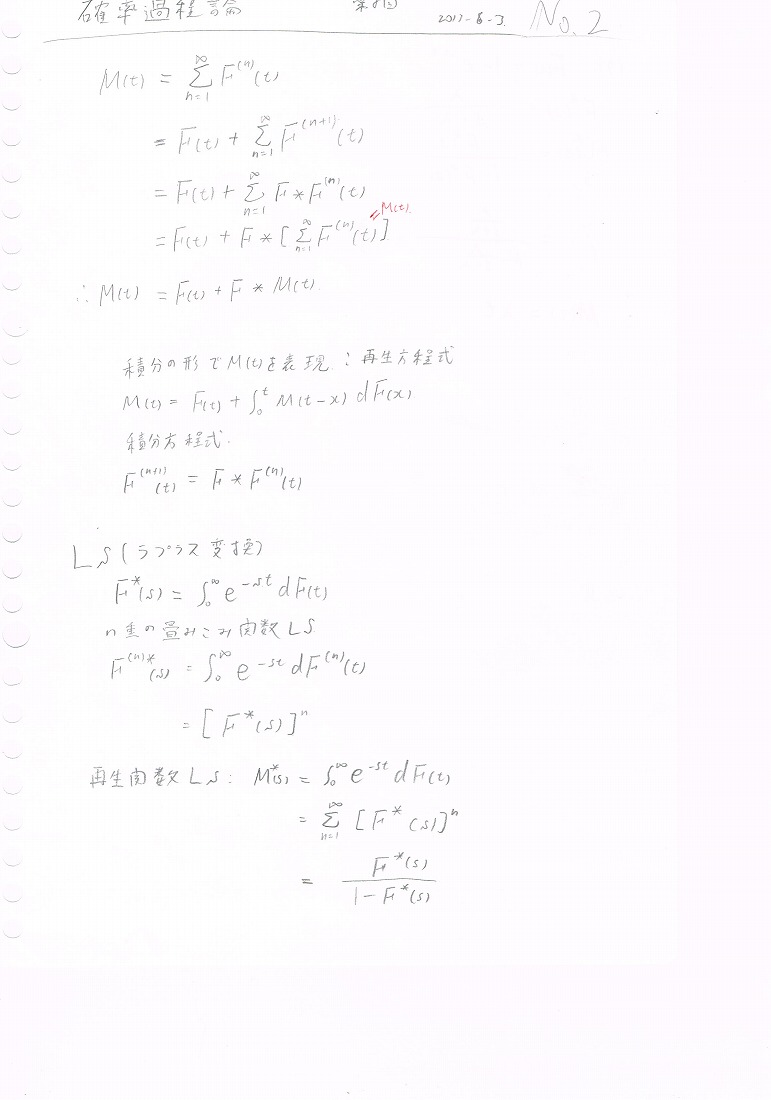 確率過程論 No.2
M(t) = Σ_{n=1}^{∞} F^{(n)}(t)
= F(t) + Σ_{n=1}^{∞} F^{(n+1)}(t)
= F(t) + Σ_{n=1}^{∞} F * F^{(n)}(t)
= F(t) + F * [Σ_{n=1}^{∞} F^{(n)}(t)] = M(t).
∴ M(t) = F(t) + F * M(t)
積分の形でM(t)を表現:再生方程式
M(t) = F(t) + ∫_0^t M(t-x) dF(x)
積分方程式.
F^{(n+1)}(t) = F * F^{(n)}(t)
LS(ラプラス変換)
F*(s) = ∫_0^∞ e^{-st} dF(t)
n重の畳みこみ関数LS
F^{(n)*}(s) = ∫_0^∞ e^{-st} dF^{(n)}(t)
= [F*(s)]^n
再生関数LS: M*(s) = ∫_0^∞ e^{-st} dF(t)
= Σ_{n=1}^{∞} [F*(s)]^n
= F*(s) / (1 - F*(s))